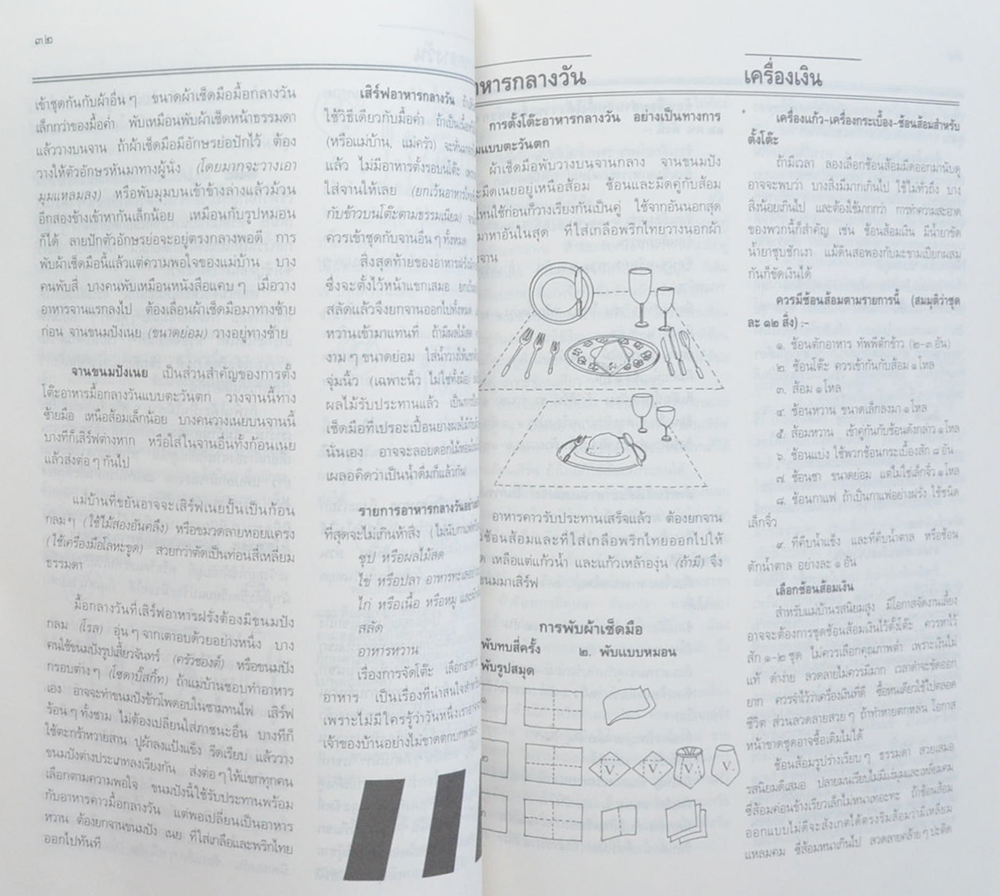 ๓๒
เข้าชุดกันกับผ้าอื่นๆ ขนาดผ้าเช็ดมือมื้อกลางวัน
เล็กกว่าของมื้อค่ำ พับเหมือนพับผ้าเช็ดหน้าธรรมดา
แล้ววางบนจาน ถ้าผ้าเช็ดมือมีอักษรย่อปักไว้ ต้อง
วางให้ตัวอักษรหันมาทางผู้นั่ง (โดยมากจะวางเอา
มุมแหลมลง) หรือพับมุมบนเข้าข้างล่างแล้วม้วน
อีกสองข้างเข้าหากันเล็กน้อย เหมือนกับรูปหมอน
ก็ได้ ลายปักตัวอักษรย่อจะอยู่ตรงกลางพอดี การ
พับผ้าเช็ดมือนี้แล้วแต่ความพอใจของแม่บ้าน บาง
คนพับสี่ บางคนพับเหมือนหนังสือแคบๆ เมื่อวาง
อาหารจานแรกลงไป ต้องเลื่อนผ้าเช็ดมือมาทางซ้าย
ก่อน จานขนมปังเนย (ขนาดย่อม) วางอยู่ทางซ้าย
จานขนมปังเนย เป็นส่วนสำคัญของการตั้ง
โต๊ะอาหารมื้อกลางวันแบบตะวันตก วางจานนี้ทาง
ซ้ายมือ เหนือส้อมเล็กน้อย บางคนวางเนยบนจานนี้
บางทีก็เสิร์ฟต่างหาก หรือใส่ในจานอื่นทั้งก้อนเนย
แล้วส่งต่อๆ กันไป
แม่บ้านที่ขยันอาจจะเสิร์ฟเนยปั้นเป็นก้อน
กลมๆ (ใช้ไม้สองอันคลึง) หรือขมวดลายหอยแครง
(ใช้เครื่องมือโลหะขูด) สวยกว่าตัดเป็นท่อนสี่เหลี่ยม
ธรรมดา
มื้อกลางวันที่เสิร์ฟอาหารฝรั่งต้องมีขนมปัง
กลม (โรล) อุ่นๆ จากเตาอบด้วยอย่างหนึ่ง บาง
คนใช้ขนมปังรูปเสี้ยวจันทร์ (ครัวซองต์) หรือขนมปัง
กรอบต่างๆ (โซดาบิ๊สกิ๊ท) ถ้าแม่บ้านชอบทำอาหาร
เอง อาจจะทำขนมปังข้าวโพดอบในชามทนไฟ เสิร์ฟ
ร้อนๆ ทั้งชาม ไม่ต้องเปลี่ยนใส่ภาชนะอื่น บางทีก็
ใช้ตะกร้าหวายสาน ปูผ้าลงแป้งแข็ง รีดเรียบ แล้ววาง
ขนมปังต่างประเภทลงเรียงกัน ส่งต่อๆ ให้แขกทุกคน
เลือกตามความพอใจ ขนมปังนี้ใช้รับประทานพร้อม
กับอาหารคาวมื้อกลางวัน แต่พอเปลี่ยนเป็นอาหาร
หวาน ต้องยกจานขนมปัง เนย ที่ใส่เกลือและพริกไทย
ออกไปทันที
เสิร์ฟอาหารกลางวัน
ใช้วิธีเดียวกับมื้อค่ำ ถ้าเป็นมื้อ
(หรือแม่บ้าน, แม่ครัว)
แล้ว ไม่มีอาหารตั้งรอบนโต๊ะ
ใส่จานให้เลย (ยกเว้นอาหาร
กับข้าวบนโต๊ะตามธรรมเนียม)
ควรเข้าชุดกับจานอื่นๆ ทั้งหมด
สิ่งสุดท้ายของอาหาร
ซึ่งจะตั้งไว้หน้าแขกเสมอ
สลัดแล้วจึงยกจานออกไปทั้งหมด
หวานเข้ามาแทนที่ ถ้ามีผลไม้
งามๆ ขนาดย่อม ใส่น้ำ
จุ่มนิ้ว (เฉพาะนิ้ว ไม่ใช่ทั้งมือ
ผลไม้รับประทานแล้ว
เช็ดมือที่เปรอะเปื้อนยางผลไม้
นั่นเอง อาจจะลอยดอกไม้
เผลอคิดว่าเป็นน้ำดื่มก็แล้วกัน
รายการอาหารกลางวัน
ที่สุดจะไม่เกินห้าสิ่ง
ซุป หรือผลไม้สด
ไข่ หรือปลา อาหารทะเล
ไก่ หรือเนื้อ หรือหมู
สลัด
อาหารหวาน
เรื่องการจัดโต๊ะ เลือก
อาหาร เป็นเรื่องที่น่าสนใจ
เพราะไม่มีใครรู้ว่าวันหนึ่งเรา
เจ้าของบ้านอย่างไม่ขาดตกบกพร่อง
หารกลางวัน
การตั้งโต๊ะอาหารกลางวัน อย่างเป็นทางการ
แบบตะวันตก
ผ้าเช็ดมือพับวางบนจานกลาง จานขนมปัง
มีดเนยอยู่เหนือส้อม ช้อนและมีดคู่กับส้อม
ไหนใช้ก่อนก็วางเรียงกันเป็นคู่ ใช้จากอันนอกสุด
มาหาอันในสุด ที่ใส่เกลือพริกไทยวางนอกผ้า
จาน
อาหารคาวรับประทานเสร็จแล้ว ต้องยกจาน
ช้อนส้อมและที่ใส่เกลือพริกไทยออกไปให้
เหลือแต่แก้วน้ำ และแก้วเหล้าองุ่น (ถ้ามี) จึง
ขนมมาเสิร์ฟ
การพับผ้าเช็ดมือ
พับทบสี่ครั้ง ๒. พับแบบหมอน
พับรูปสมุด
๒
V. V. V. V.
๓
เครื่องเงิน
เครื่องแก้ว-เครื่องกระเบื้อง-ช้อนส้อมสำหรับ
ตั้งโต๊ะ
ถ้ามีเวลา ลองเลือกช้อนส้อมมีดออกมานับดู
อาจจะพบว่า บางสิ่งมีมากเกินไป ใช้ไม่ทั่วถึง บาง
สิ่งน้อยเกินไป และต้องใช้มากกว่า การทำความสะอาด
ของพวกนี้ก็สำคัญ เช่น ช้อนส้อมเงิน มีน้ำยาขัด
น้ำยาชุบชักเงา แม้ดินสอพองกับมะขามเปียกผสม
กันก็ขัดเงินได้
ควรมีช้อนส้อมตามรายการนี้ (สมมุติว่าชุด
ละ ๑๒ สิ่ง) :-
๑. ช้อนตักอาหาร ทัพพีตักข้าว (๒-๓ อัน)
๒. ช้อนโต๊ะ ควรเข้ากันกับส้อม ๑ โหล
๓. ส้อม ๑ โหล
๔. ช้อนหวาน ขนาดเล็กลงมา ๑ โหล
๕. ส้อมหวาน เข้าคู่กันกับช้อนดังกล่าว ๑ โหล
๖. ช้อนแบ่ง ใช้พวกช้อนกระเบื้องสัก ๘ อัน
๗. ช้อนชา ขนาดย่อม แต่ไม่ใช่เล็กจิ๋ว ๑ โหล
๘. ช้อนกาแฟ ถ้าเป็นกาแฟอย่างฝรั่ง ใช้ชนิด
เล็กจิ๋ว
๙. ที่คีบน้ำแข็ง และที่คีบน้ำตาล หรือช้อน
ตักน้ำตาล อย่างละ ๑ อัน
เลือกช้อนส้อมเงิน
สำหรับแม่บ้านรสนิยมสูง มีโอกาสจัดงานเลี้ยง
อาจจะต้องการชุดช้อนส้อมเงินไว้ตั้งโต๊ะ ควรหาไว้
สัก ๑-๒ ชุด ไม่ควรเลือกคุณภาพต่ำ เพราะเงินไม่
แท้ ดำง่าย ลวดลายไม่ควรมีมาก เวลาล้างจะขัดออก
ยาก ควรจำไว้ว่าเครื่องเงินที่ดี ซื้อหนเดียวใช้ไปตลอด
ชีวิต ส่วนลวดลายสวยๆ ถ้าทำหายตกหล่น โอกาส
หน้าขาดชุดอาจซื้อเติมไม่ได้
ช้อนส้อมรูปร่างเรียบๆ ธรรมดา สวยเสมอ